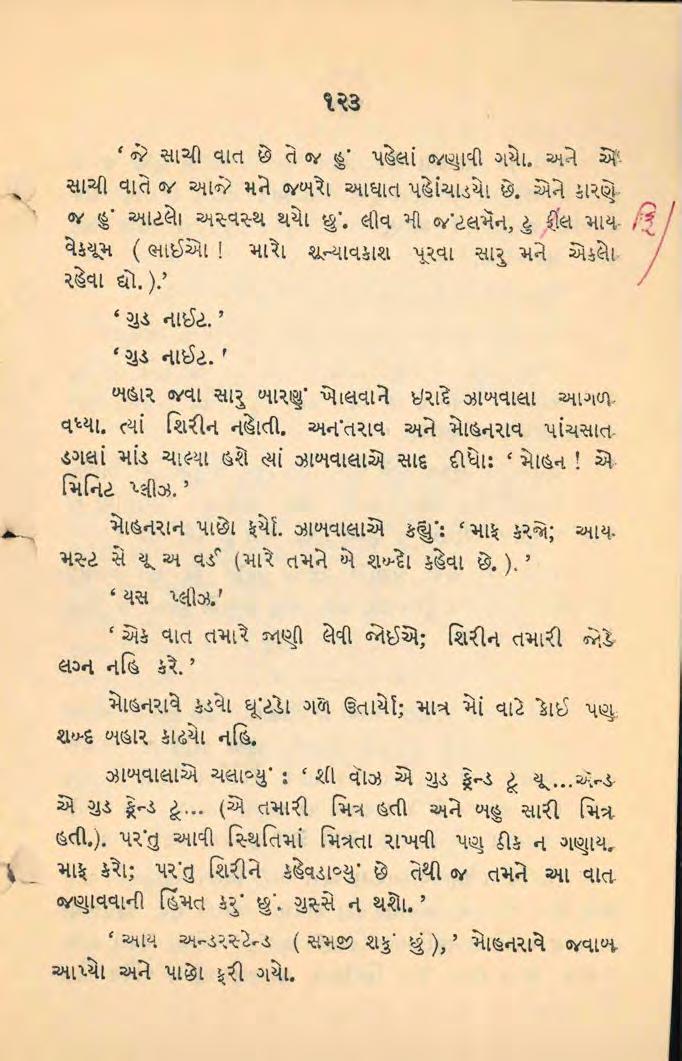 ૧૨૩
‘ જે સાચી વાત છે તે જ હું પહેલાં જણાવી ગયો. અને એ
સાચી વાતે જ આજે મને જબરો આઘાત પહોંચાડયો છે. એને કારણે
જ હું આટલો અસ્વસ્થ થયો છું. લીવ મી જંટલમૅન, ટુ ફીલ માય
વેક્યૂમ ( ભાઈઓ ! મારો શૂન્યાવકાશ પૂરવા સારુ મને એકલો
રહેવા દ્યો. ).’
‘ ગુડ નાઈટ. ’
‘ ગુડ નાઈટ. ’
બહાર જવા સારુ બારણું ખોલવાને ઇરાદે ઝાબવાલા આગળ
વધ્યા. ત્યાં શિરીન નહોતી. અનંતરાવ અને મોહનરાવ પાંચસાત
ડગલાં માંડ ચાલ્યા હશે ત્યાં ઝાબવાલાએ સાદ દીધો: ‘ મોહન ! એ
મિનિટ પ્લીઝ. ’
મોહનરાન પાછો ફર્યો. ઝાબવાલાએ કહ્યું: ‘ માફ કરજો; આય
મસ્ટ સે યૂ અ વર્ડ (મારે તમને બે શબ્દો કહેવા છે. ). ’
‘ યસ પ્લીઝ.’
‘ એક વાત તમારે જાણી લેવી જોઈએ; શિરીન તમારી જોડે
લગ્ન નહિ કરે. ’
મોહનરાવે કડવો ઘૂંટડો ગળે ઉતાર્યો; માત્ર મોં વાટે કોઈ પણ
શબ્દ બહાર કાઢયો નહિ.
ઝાબવાલાએ ચલાવ્યું : ‘ શી વૉઝ એ ગુડ ફ્રેન્ડ ટૂ યૂ ...ઍન્ડ
એ ગુડ ફ્રેન્ડ ટૂ... (એ તમારી મિત્ર હતી અને બહુ સારી મિત્ર
હતી.). પરંતુ આવી સ્થિતિમાં મિત્રતા રાખવી પણ ઠીક ન ગણાય.
માફ કરો; પરંતુ શિરીને કહેવડાવ્યું છે તેથી જ તમને આ વાત
જણાવવાની હિંમત કરું છું. ગુસ્સે ન થશો. ’
‘ આય અન્ડરસ્ટેન્ડ ( સમજી શકું છું ), ’ મોહનરાવે જવાબ
આપ્યો અને પાછો ફરી ગયો.